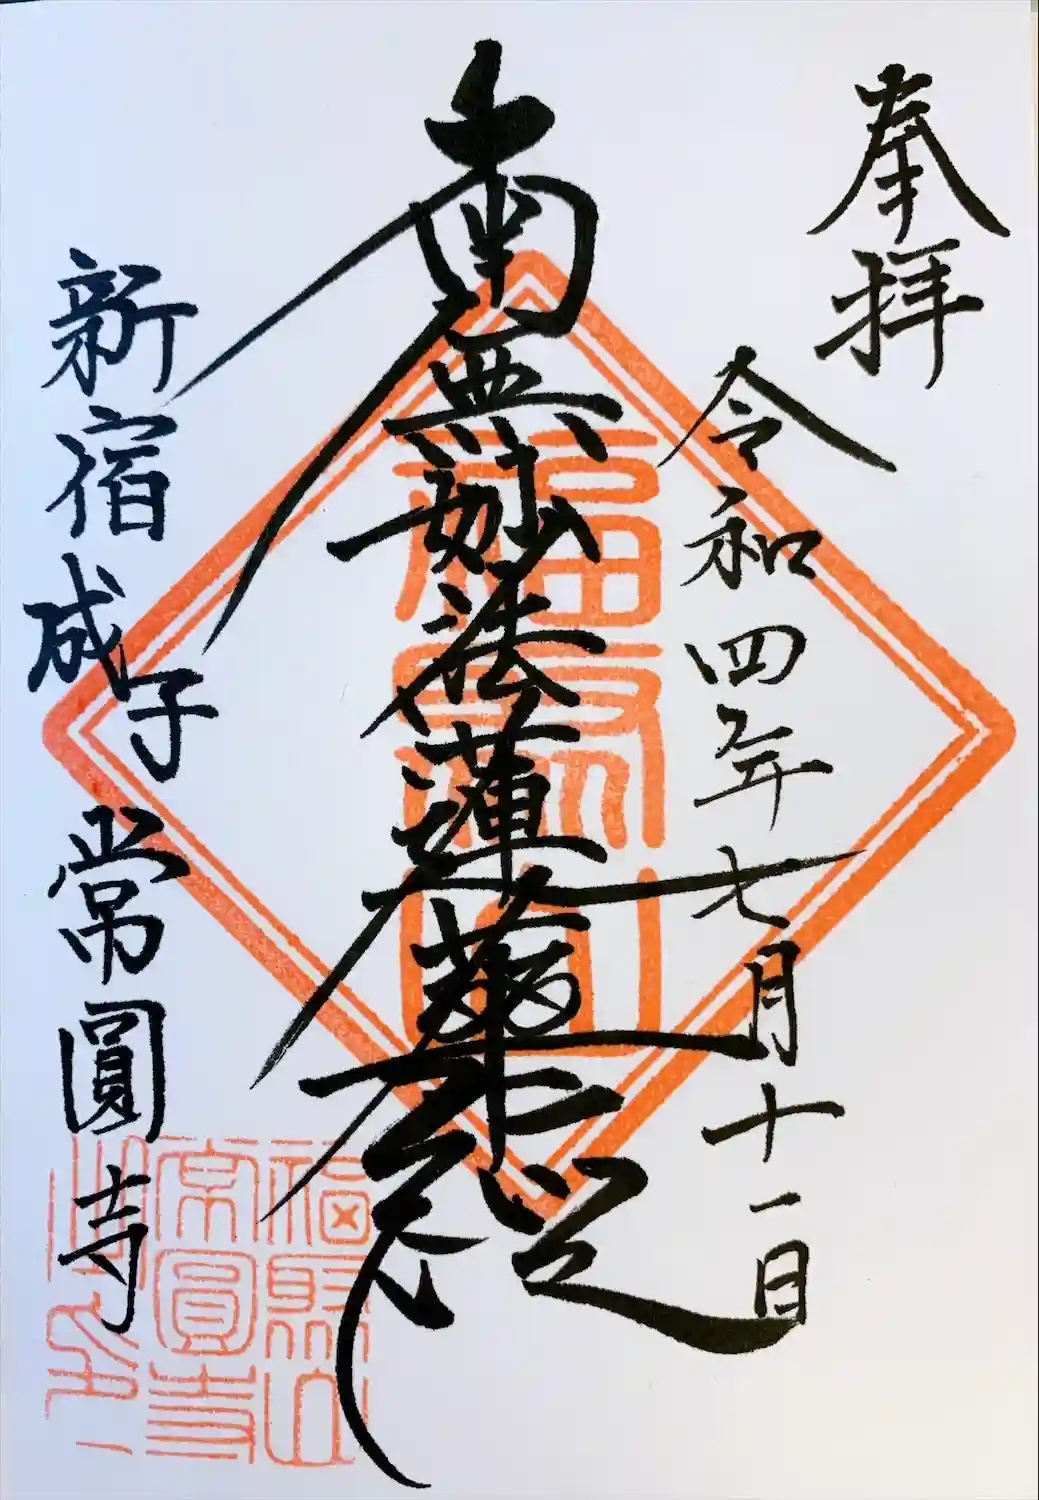 奉拝
令和四年七月十一日
南無妙法蓮華経
新宿成子常圓寺
福聚山
福聚山
常圓寺